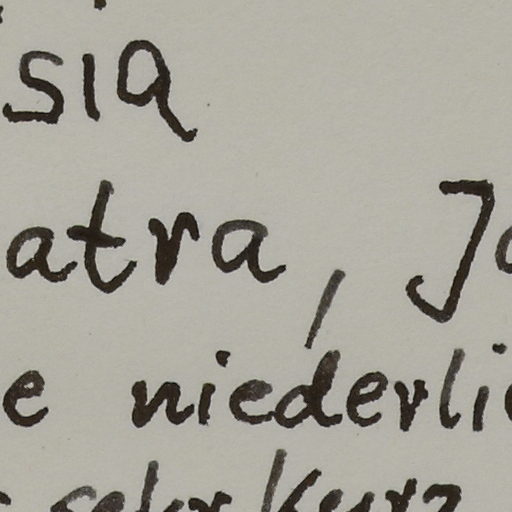 sia
atra, Ja
e niederli
sehr kurz